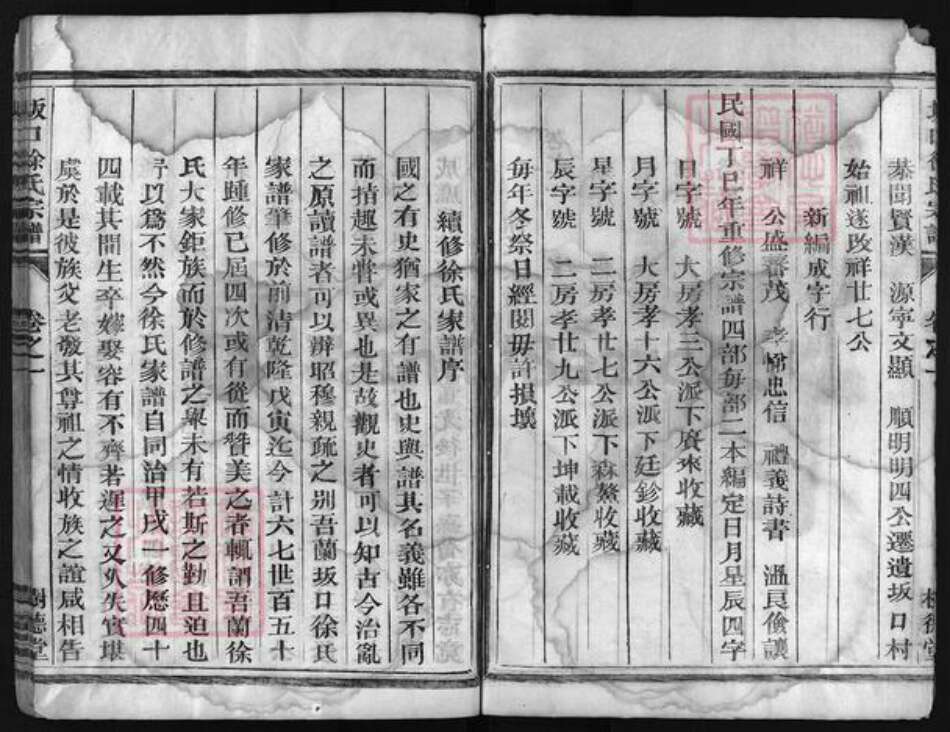 坂口徐氏宗譜 卷之一 樹德堂
恭聞賢漢 源寧文顯 順明明四公遷遺坂口村
始祖遂改祥廿七公
新編成字行
祥 公盛蕃茂 孝悌忠信 禮義詩書 溫良儉讓
民國丁巳年重修宗譜四部每部二本編定日月星辰四字
日字號 大房孝三公派下廣來收藏
月字號 大房孝十六公派下廷鉁收藏
星字號 二房孝廿七公派下森鰲收藏
辰字號 二房孝廿九公派下坤載收藏
每年冬祭日經閱毋許損壞
續修徐氏家譜序
國之有史猶家之有譜也史與譜其名義雖各不同
而指趣未甞或異也是故觀史者可以知古今治亂
之原讀譜者可以辨昭穆親疏之别吾蘭坂口徐氏
家譜肇修於前清乾隆戊寅迄今計六七世百五十
年踵修已屆四次或有從而贊美之者輒謂吾蘭徐
氏大家鉅族而於修譜之舉未有若斯之勤且迫也
予以爲不然今徐氏家譜自同治甲戌一修歷四十
四載其間生卒嫁娶容有不齊若遲之又久失實堪
虞於是彼族父老發其尊祖之情收族之誼咸相告
坂口徐氏宗譜 卷之一 樹德堂